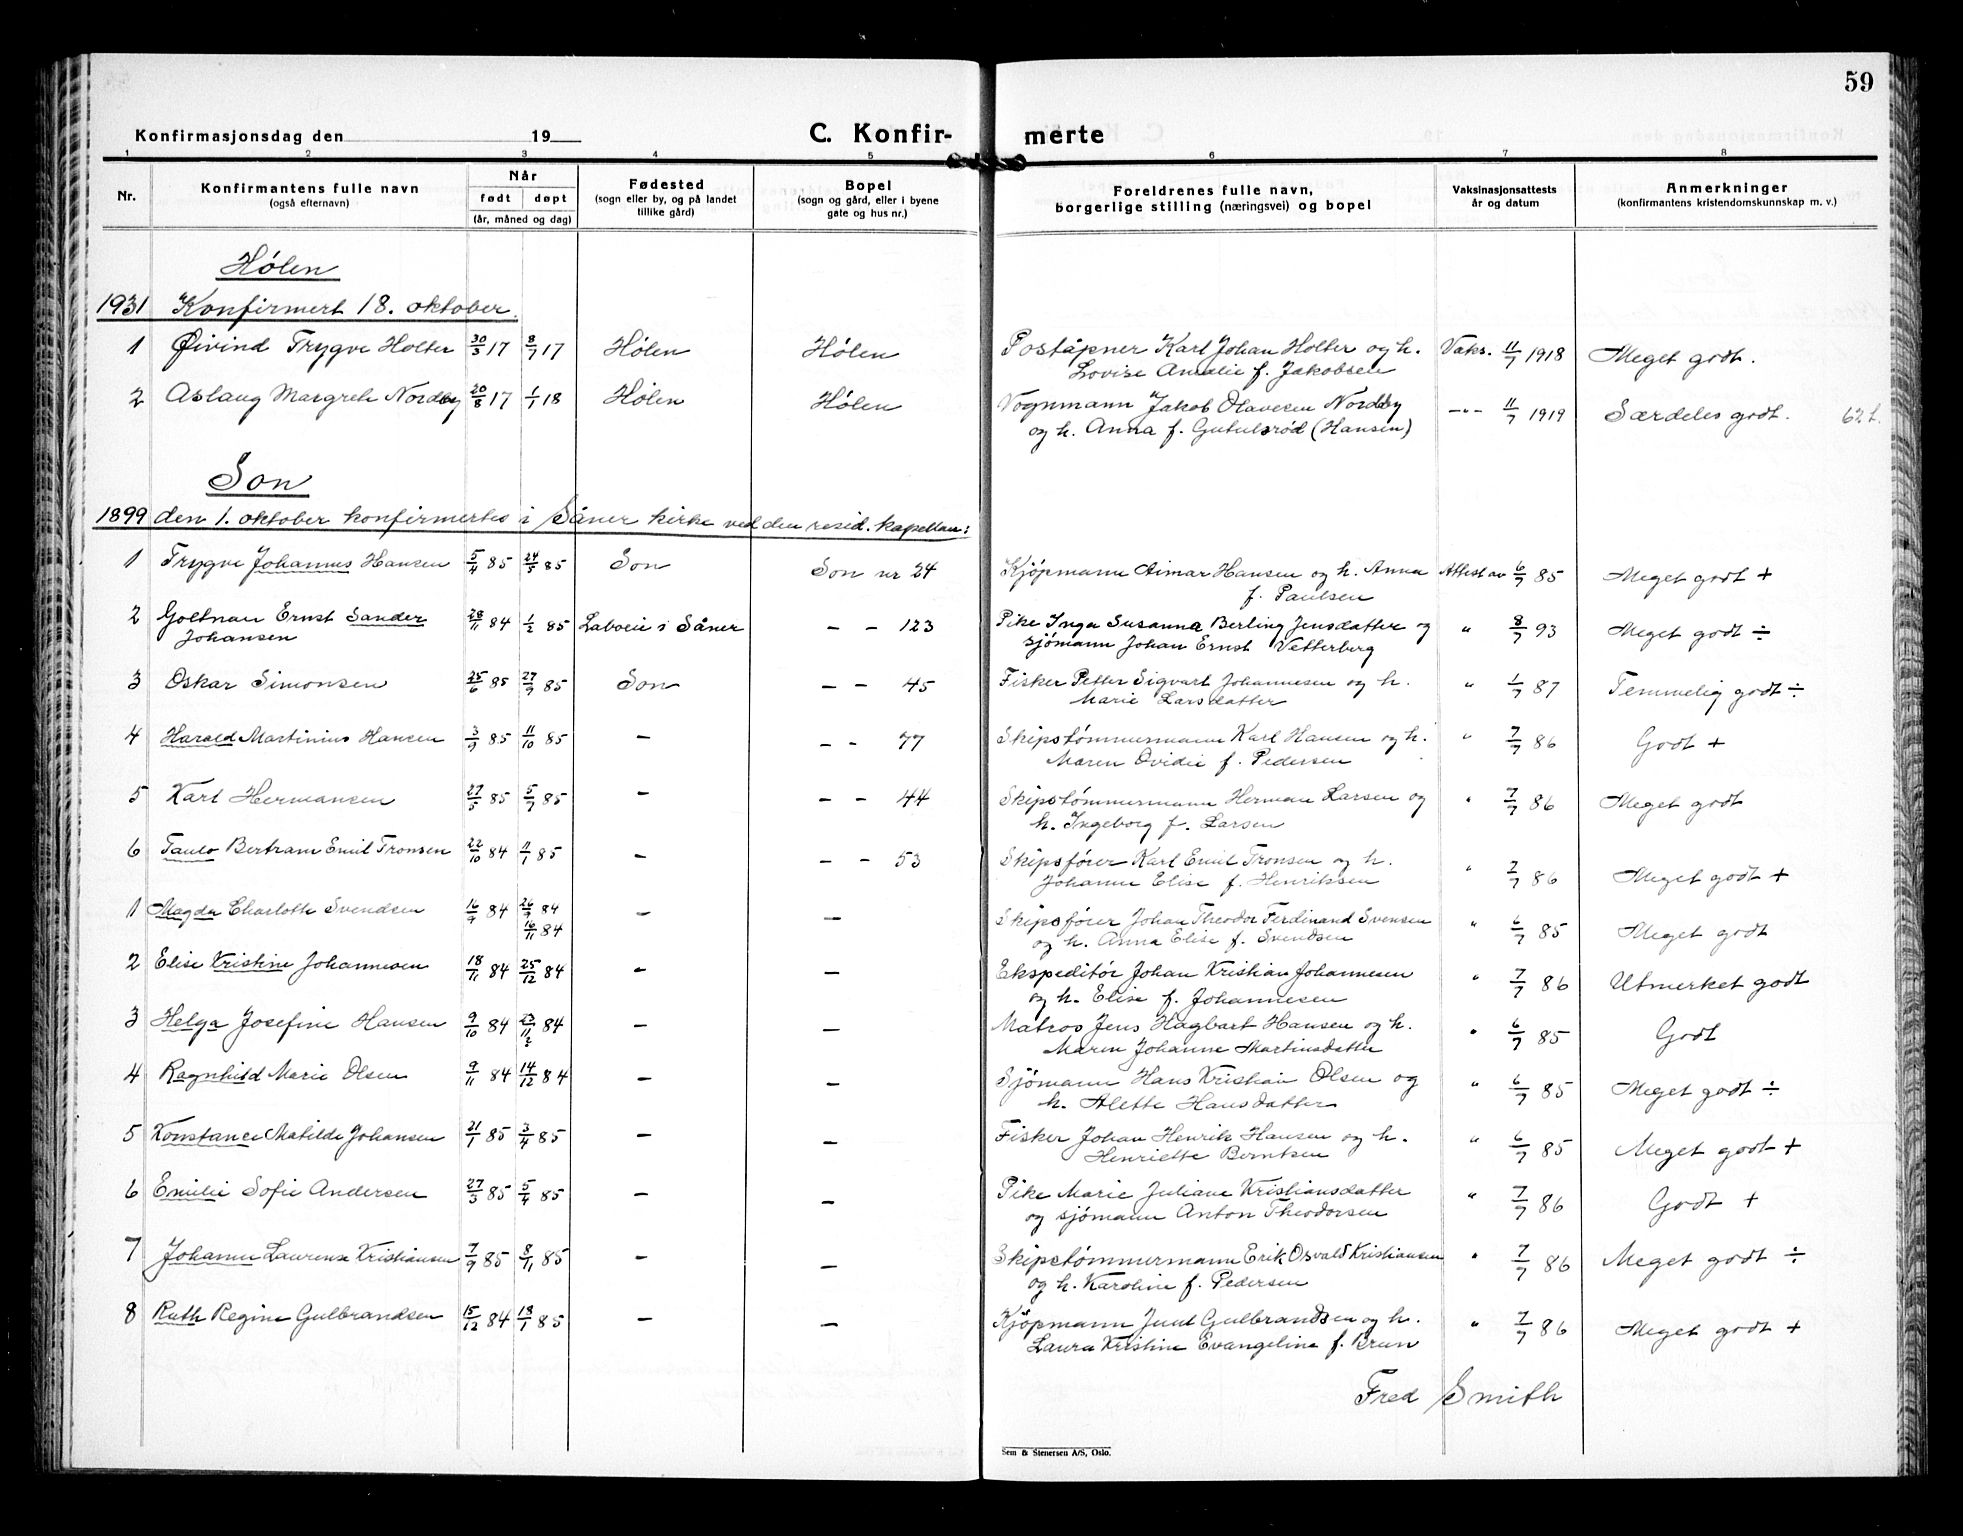 59
Konfirmasjonsdag den 19
C. Konfir- merte
1 2 3 4 5 6 7 8
Nr.
Konfirmantens fulle navn
(også efternavn)
Når
født døpt
(år, måned og dag)
Fødested
(sogn eller by, og på landet
tillike gård)
Bopel
(sogn og gård, eller i byene
gate og hus nr.)
Foreldrenes fulle navn,
borgerlige stilling (næringsvei) og bopel
Vaksinasjonsattests
år og datum
Anmerkninger
(konfirmantens kristendomskunnskap m. v.)
Hølen
1931 Konfirmert 18. oktober.
1 Øivind Trygve Holter 30/3 17 8/7 17 Hølen Hølen Poståpner Karl Johan Holter og h. Vaks. 11/7 1918 Meget godt.
Lovise Amalie f. Jakobsen
2 Aslaug Margrete Nordby 20/8 17 1/1 18 Hølen Hølen Vognmann Jakob Olavesen Nordby -"- 11/7 1919 Særdeles godt.
og h. Anna f. Gutulsrød (Hansen)
Son
1899 den 1. oktober konfirmertes i Såner kirke ved den resid. kapellan:
1 Trygve Johannes Hansen 5/4 85 24/5 85 Son Son nr 24 Kjøpmann Aimar Hansen og h. Anna Attest av 6/7 85 Meget godt +
f. Paulsen
2 Ernst Sander 28/11 84 1/2 85 i Såner — — 123 Pike Inga Susanna Berling Jensdatter og " 8/7 93 Meget godt ÷
Johansen sjømann Johan Ernst Vetterberg
3 Oskar Simonsen 25/6 85 27/9 85 Son — — 45 Fisker Petter Sigvart Johannesen og h. " 1/7 87 Temmelig godt ÷
Marie Larsdatter
4 Harald Martinius Hansen 3/9 85 11/10 85 — — — 77 Skipstømmermann Karl Hansen og h. " 7/7 86 Godt +
Maren Ovidie f. Pedersen
5 Karl Hermansen 27/5 85 5/7 85 — — — 44 Skipstømmermann Herman Larsen og " 7/7 86 Meget godt
h. Ingeborg f. Larsen
6 Paulo Bertram Emil Tronsen 22/10 84 11/1 85 — — — 53 Skipsfører Karl Emil Tronsen og h. " 7/7 86 Meget godt +
Johanne Elise f. Henriksen
1 Magda Charlotte Svendsen 16/9 84 26/9 84 — — Skipsfører Johan Theodor Ferdinand Svensen " 6/7 85 Meget godt
16/11 84 og h. Anna Elise f. Svendsen
2 Elise Kristine Johannesen 18/11 84 25/12 84 — — Ekspeditør Johan Kristian Johannesen " 7/7 86 Utmerket godt
og h. Elise f. Johannesen
3 Helga Josefine Hansen 9/10 84 23/11 84 — — Matros Jens Hagbart Hansen og h. " 6/7 85 Godt
Maren Johanne Martinsdatter
4 Ragnhild Marie Olsen 9/11 84 14/12 84 — — Sjømann Hans Kristian Olsen og " 6/7 85 Meget godt ÷
h. Alette Hansdatter
5 Konstance Matilde Johansen 21/1 85 3/4 85 — — Fisker Johan Henrik Hansen og h. " 6/7 85 Meget godt +
Henriette Berntsen
6 Emilie Sofie Andersen 27/3 85 5/4 85 — — Pike Marie Juliane Kristiansdatter " 7/7 86 Godt +
og sjømann Anton Theodorsen
7 Johanne Laurense Kristiansen 7/9 85 8/11 85 — — Skipstømmermann Erik Osvald Kristiansen " 7/7 86 Meget godt ÷
og h. Karoline f. Pedersen
8 Ruth Regine Gulbrandsen 15/12 84 18/1 85 — — Kjøpmann Juul Gulbrandsen og h. " 7/7 86 Meget godt +
Laura Kristine Evangeline f. Brun
Fred Smith
Sem & Stenersen A/S, Oslo.